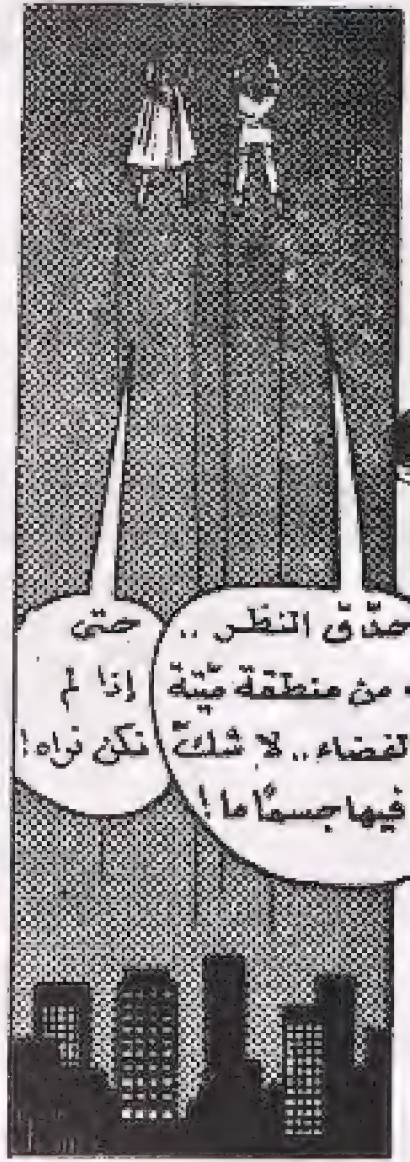 حدّق النظر ..
من منطقة ميّتة
الفضاء.. لا شكّ
فيها جسمًا ما!
حتى
إذا لم
نكن نراه!